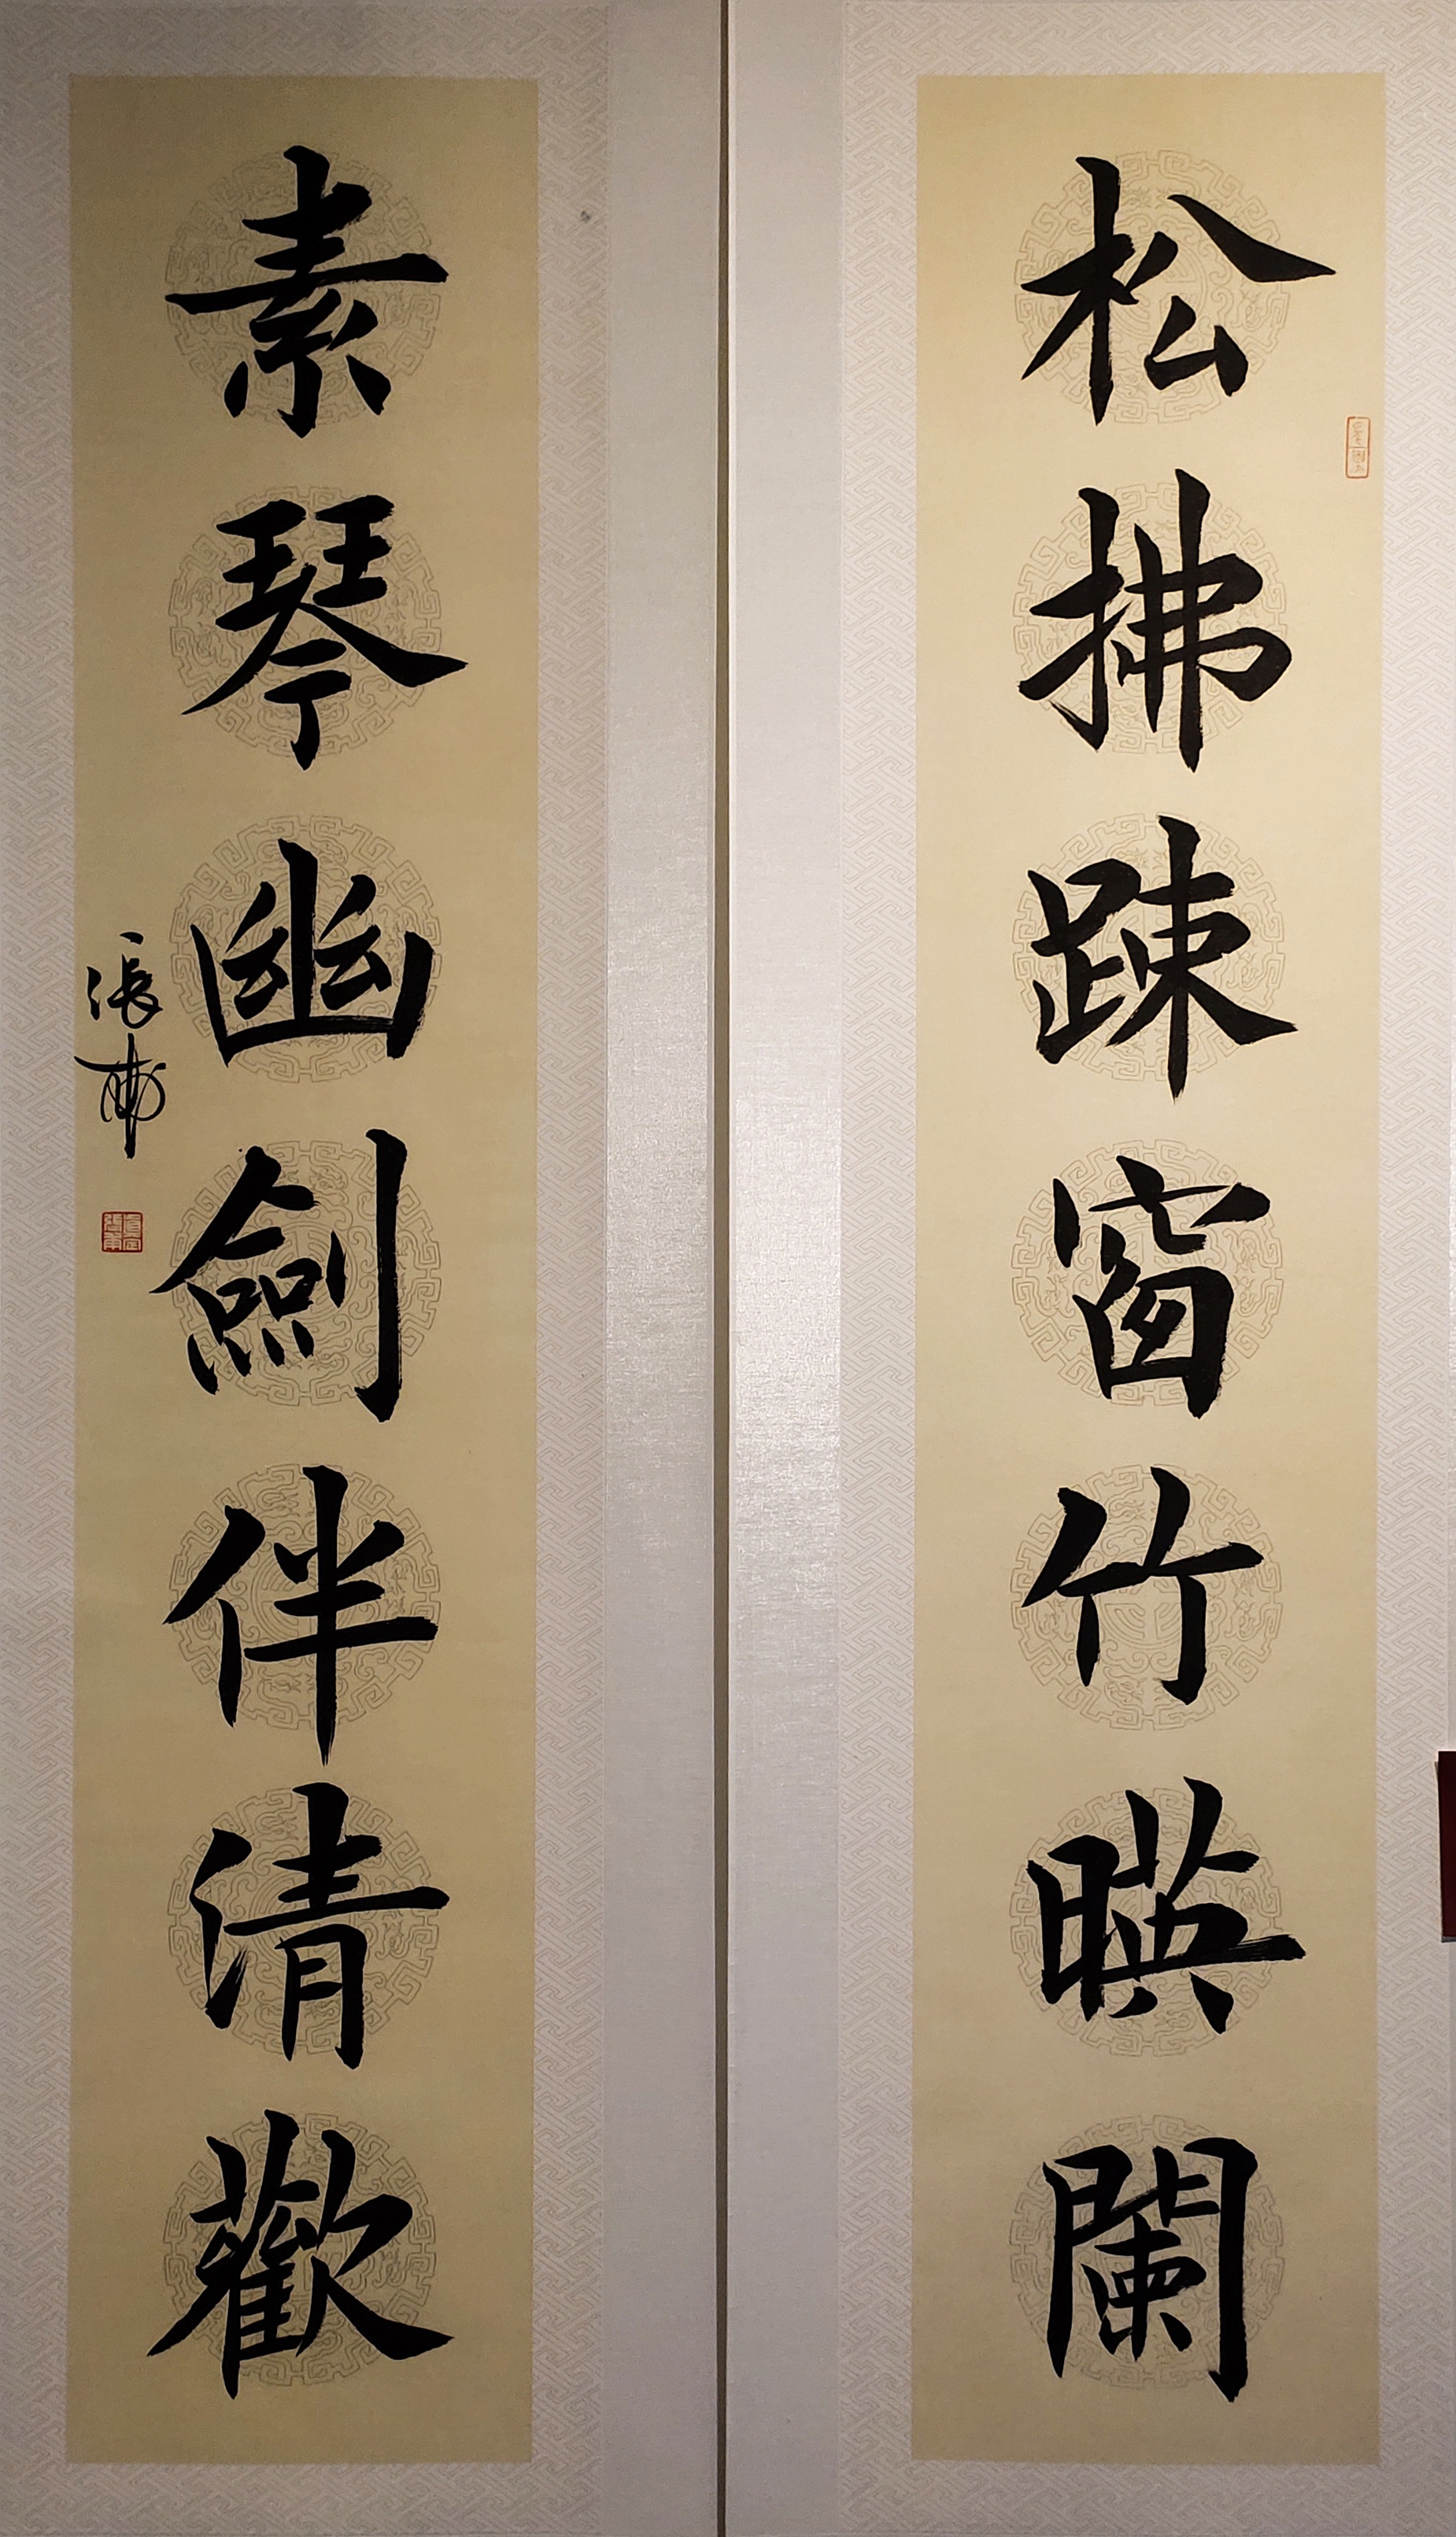 松拂踈窗竹暎闌
素琴幽劍伴清歡
張